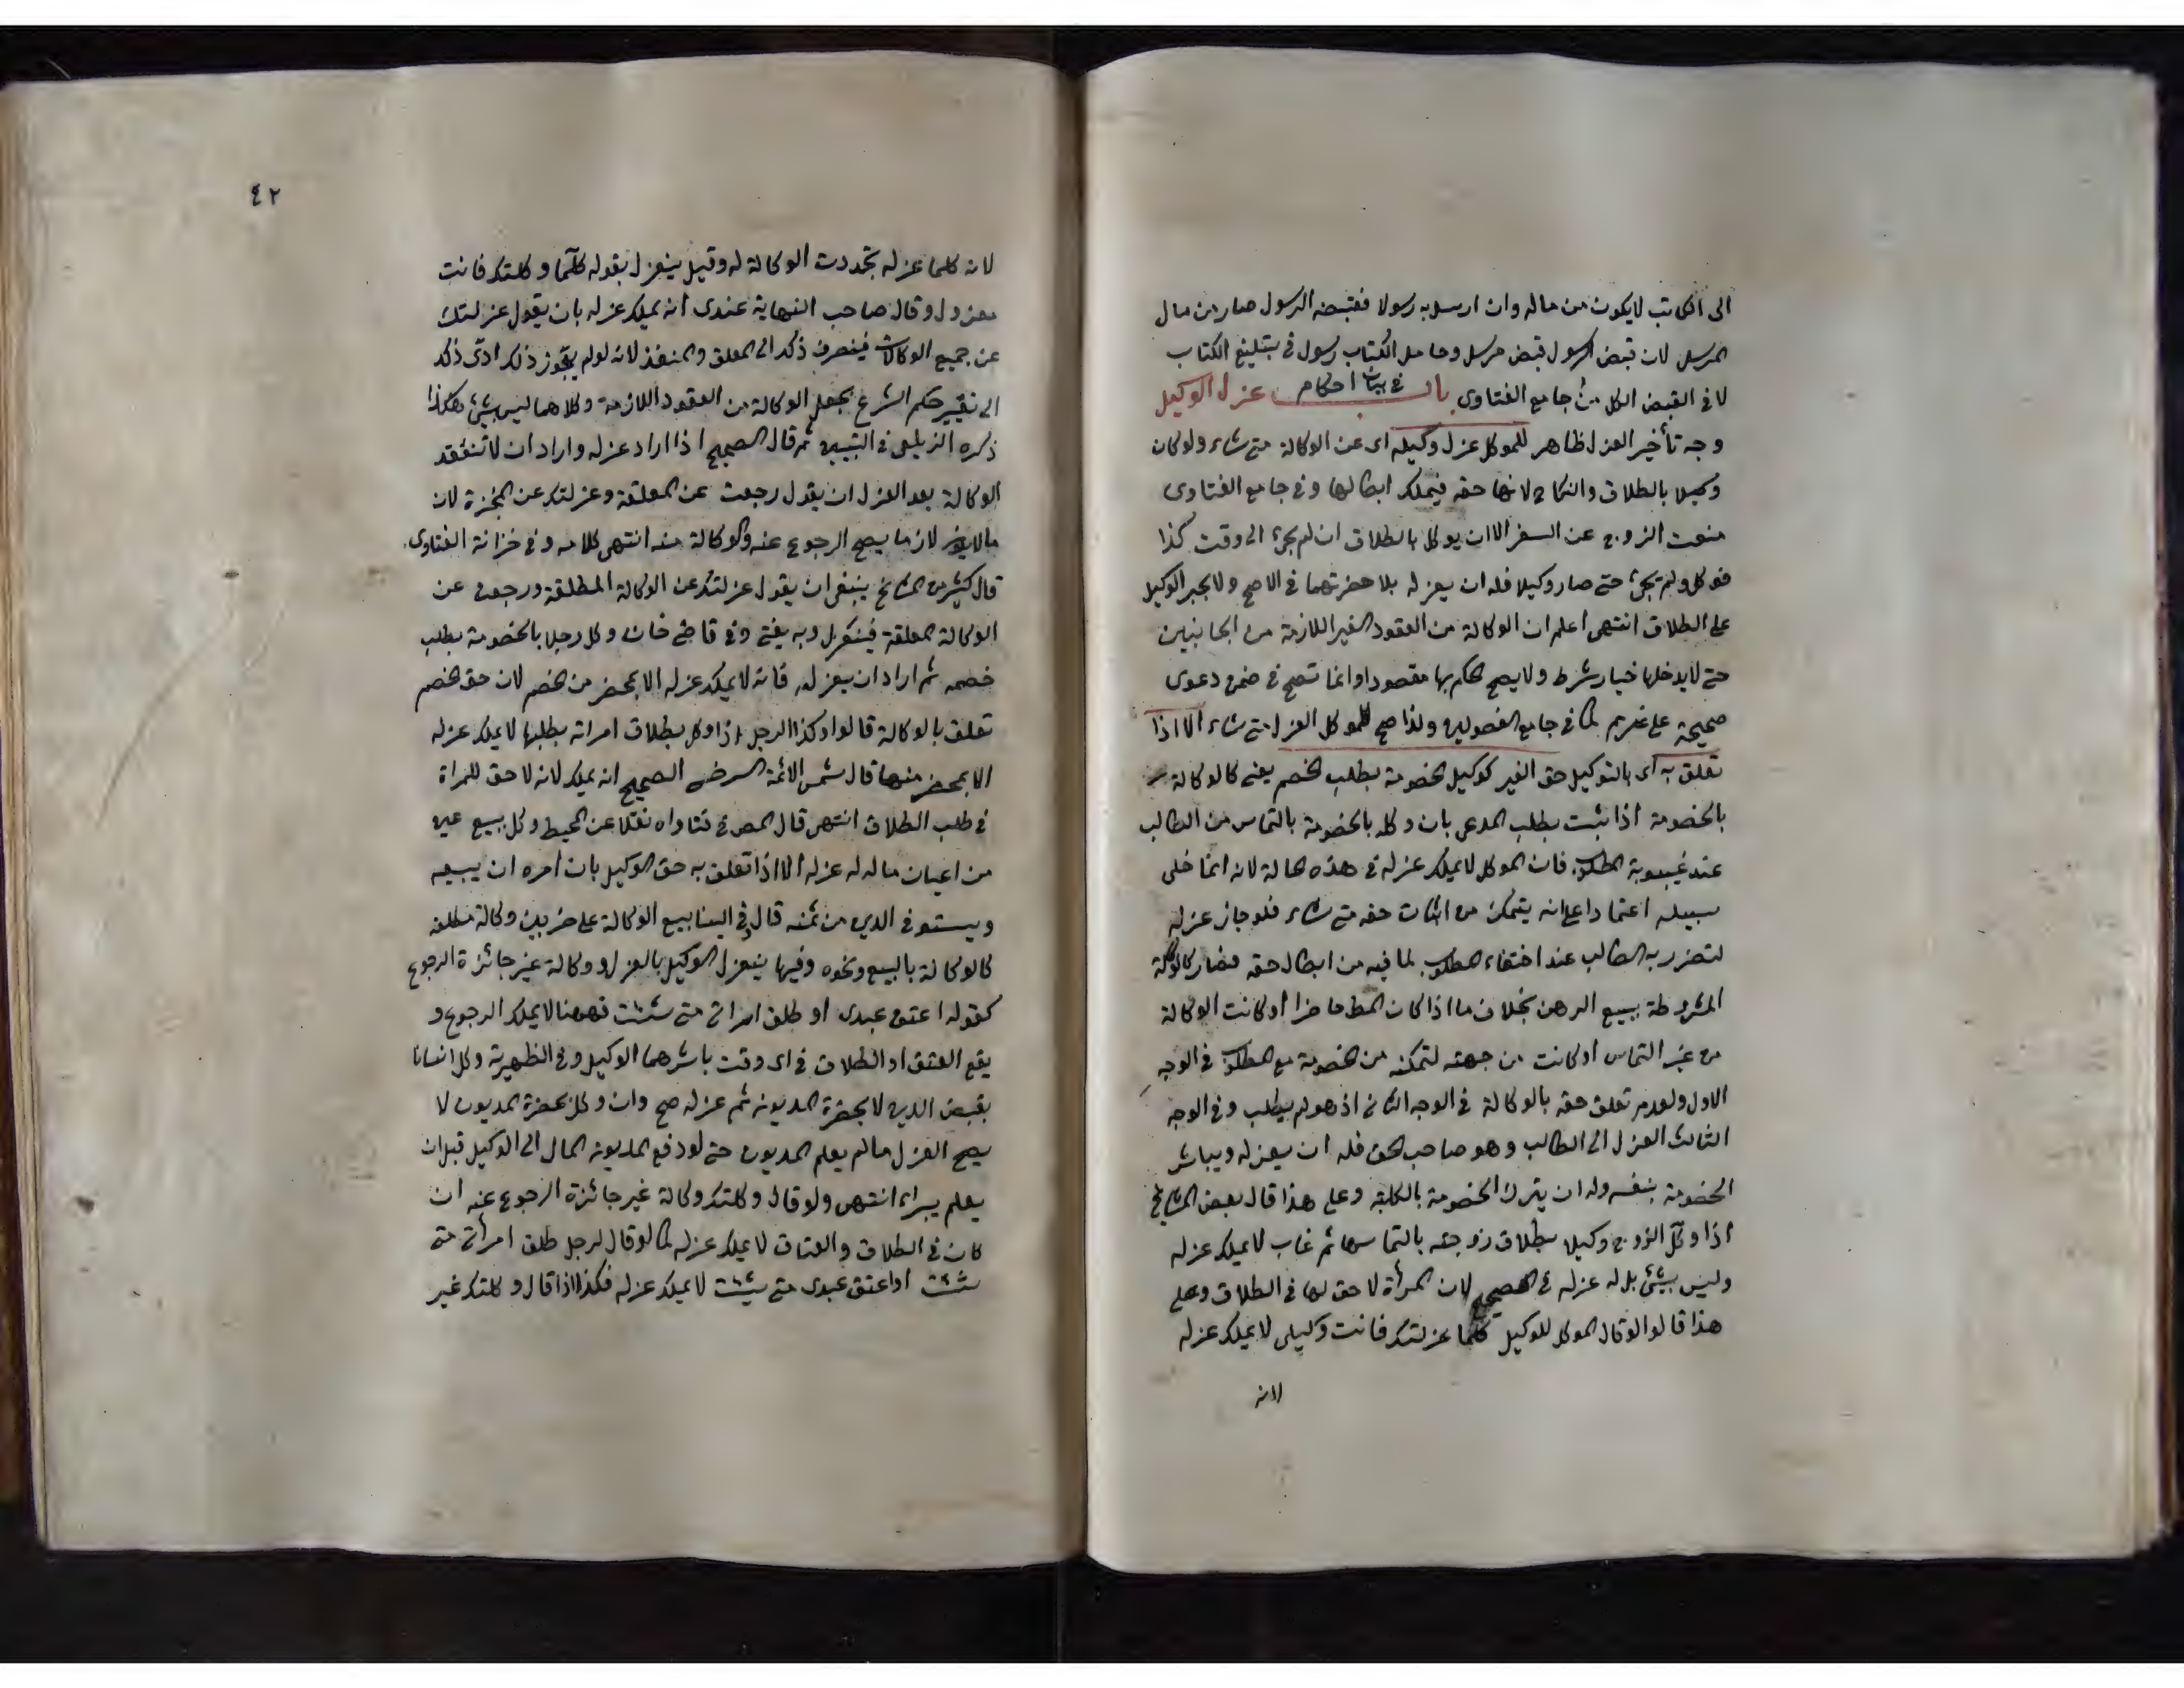 الى الكاتب لايكون من ماله وان ارسل به رسولا فقبضه الرسول صار من مال
المرسل لان قبض الرسول قبض مرسل وحامل الكتاب رسول في تبليغ الكتاب
لا في القبض الكل من جامع الفتاوى باب في بيان احكام عزل الوكيل
وجه تأخير العزل ظاهر للموكل عزل وكيله اى عن الوكالة متى شاء ولو كان
وكيلا بالطلاق والنكاح لانها حقه فيملك ابطالها وفي جامع الفتاوى
منعت الزوج عن السفر الا ان يوكل بالطلاق ان لم يجئ الى وقت كذا
فوكل ولم يجئ حتى صار وكيلا فله ان يعزله بلا حضرتهما في الاصح ولا يجبر الوكيل
على الطلاق انتهى اعلم ان الوكالة من العقود الغير اللازمة من الجانبين
حتى لا يدخلها خيار شرط ولا يصح الحكم بها مقصودا وانما تصح في ضمن دعوى
صحيحة على غريم كما في جامع الفصولين ولذا صح للموكل العزل متى شاء الا اذا
تعلق به اى بالتوكيل حق الغير كوكيل خصومة بطلب الخصم يعنى كالوكالة
بالخصومة اذا ثبت بطلب المدعى بان وكله بالخصومة بالتماس من الطالب
عند غيبوبة المطلوب فان الموكل لا يملك عزله في هذه الحالة لانه انما خلى
سبيله اعتمادا على انه يتمكن من اثبات حقه متى شاء فلو جاز عزله
لتضرر به الطالب عند اختفاء المطلوب لما فيه من ابطال حقه فصار كالوكالة
المشروطة ببيع الرهن بخلاف ما اذا كان المط حاضرا او كانت الوكالة
من غير التماس او كانت من جهته لتمكنه من الخصومة مع المطلوب في الوجه
الاول ولعدم تعلق حقه بالوكالة في الوجه الثانى اذ هو لم يطلب وفي الوجه
الثالث العزل الى الطالب وهو صاحب الحق فله ان يعزله ويباشر
الخصومة بنفسه وله ان يترك الخصومة بالكلية وعلى هذا قال بعض المشايخ
اذا وكل الزوج وكيلا بطلاق زوجته بالتماسها ثم غاب لا يملك عزله
وليس بشئ بل له عزله في الصحيح لان المرأة لا حق لها في الطلاق وعلى
هذا قالوا لو قال الموكل للوكيل كلما عزلتك فانت وكيلى لا يملك عزله
لانه
٤٢
لانه كلما عزله تجددت الوكالة له وقيل ينعزل بقوله كلما وكلتك فانت
معزول وقال صاحب النهاية عندى انه يملك عزله بان يقول عزلتك
عن جميع الوكالات فينصرف ذلك الى المعلق والمنفذ لانه لو لم يجوز ذلك ادى ذلك
الى تغيير حكم الشرع بجعل الوكالة من العقود اللازمة وكلاهما ليس بشئ هكذا
ذكره الزيلعى في التبيين ثم قال الصحيح اذا اراد عزله واراد ان لا تنعقد
الوكالة بعد العزل ان يقول رجعت عن المعلقة وعزلتك عن المنجزة لان
ما لا يكون لازما يصح الرجوع عنه والوكالة منه انتهى كلامه وفي خزانة الفتاوى
قال كثير من المشايخ ينبغى ان يقول عزلتك عن الوكالة المطلقة ورجعت عن
الوكالة المعلقة فينعزل وبه يفتى وفي قاضى خان وكل رجلا بالخصومة بطلب
خصمه ثم اراد ان يعزله فانه لا يملك عزله الا بمحضر من الخصم لان حق الخصم
تعلق بالوكالة قالوا وكذا الرجل اذا وكل بطلاق امراته بطلبها لا يملك عزله
الا بمحضر منها قال شمس الائمة السرخسى الصحيح انه يملك لانه لا حق للمراة
في طلب الطلاق انتهى قال المص في فتاواه نقلا عن المحيط وكل ببيع عين
من اعيان ماله له عزله الا اذا تعلق به حق الوكيل بان امره ان يبيعه
ويستوفى الدين من ثمنه قال في الينابيع الوكالة على ضربين وكالة مطلقة
كالوكالة بالبيع ونحوه وفيها ينعزل الوكيل بالعزل ووكالة غير جائزة الرجوع
كقوله اعتق عبدى او طلق امراتى متى شئت فههنا لا يملك الرجوع و
يقع العتق او الطلاق في اى وقت باشرهما الوكيل وفي الظهيرية وكل انسانا
بقبض الدين لا بحضرة المديون ثم عزله صح وان وكل بحضرة المديون لا
يصح العزل ما لم يعلم المديون حتى لو دفع المديون المال الى الوكيل قبل ان
يعلم يبراء انتهى ولو قال وكلتك وكالة غير جائزة الرجوع عنه ان
كان في الطلاق والعتاق لا يملك عزله كما لو قال لرجل طلق امرأتى متى
شئت او اعتق عبدى متى شئت لا يملك عزله فكذا اذا قال وكلتك غير